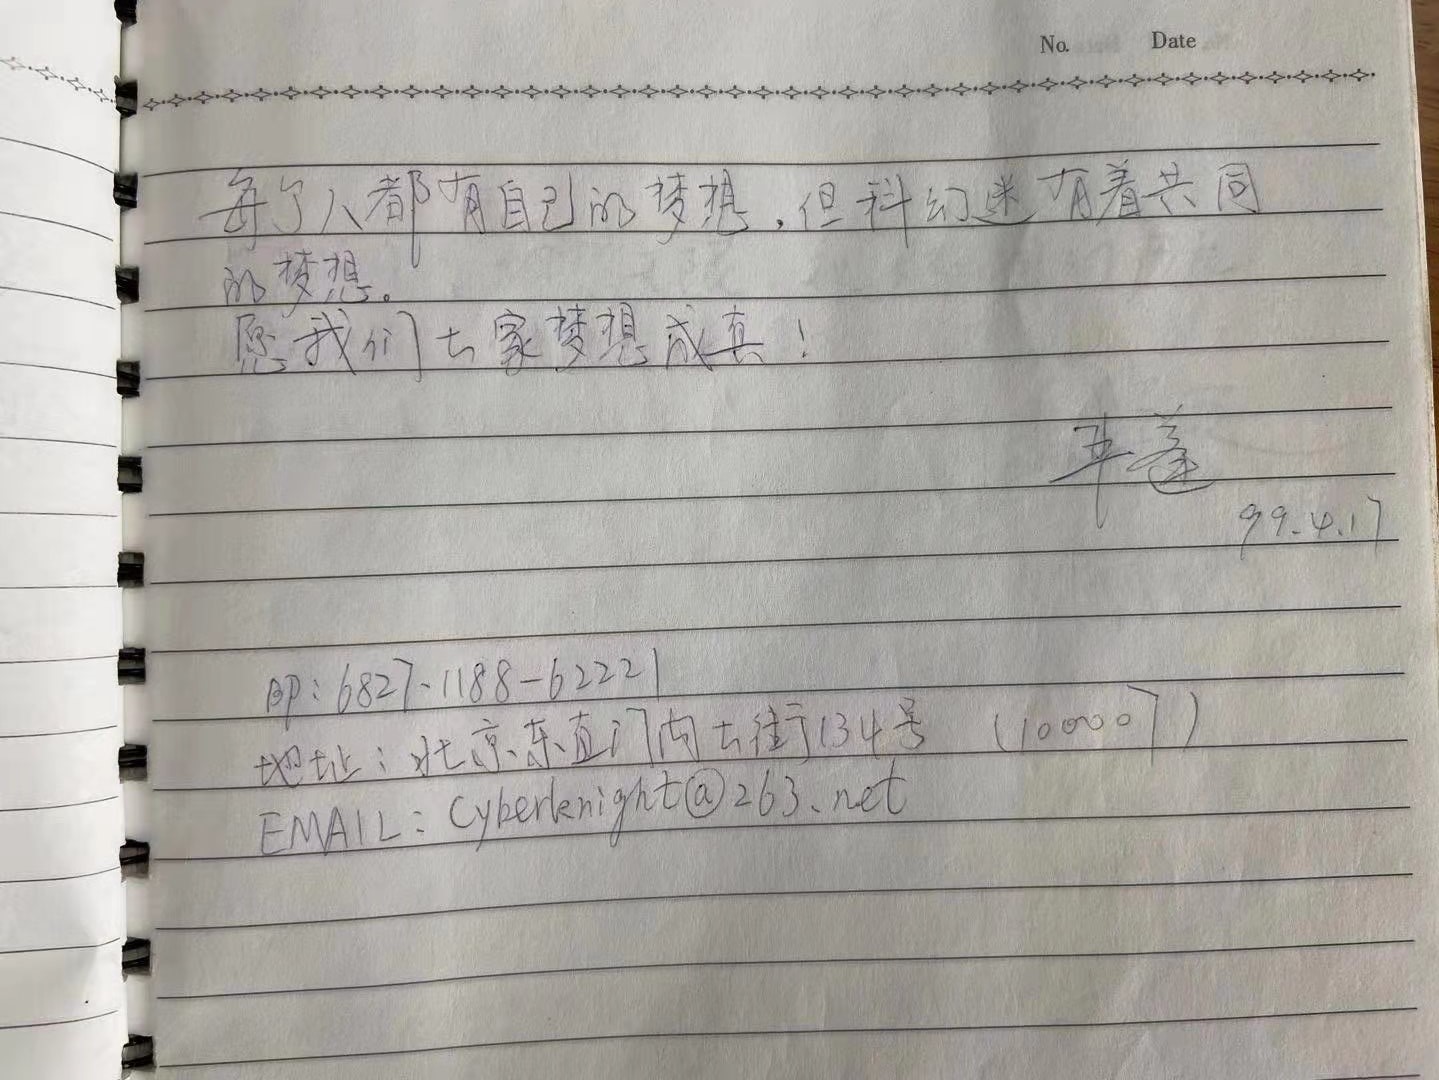 No. Date
每个人都有自己的梦想,但科幻迷有着共同
的梦想。
愿我们大家梦想成真!
99.4.17
BP:6827-1188-62221
地址:北京东直门内大街134号 (100007)
EMAIL:Cyberknight@263.net